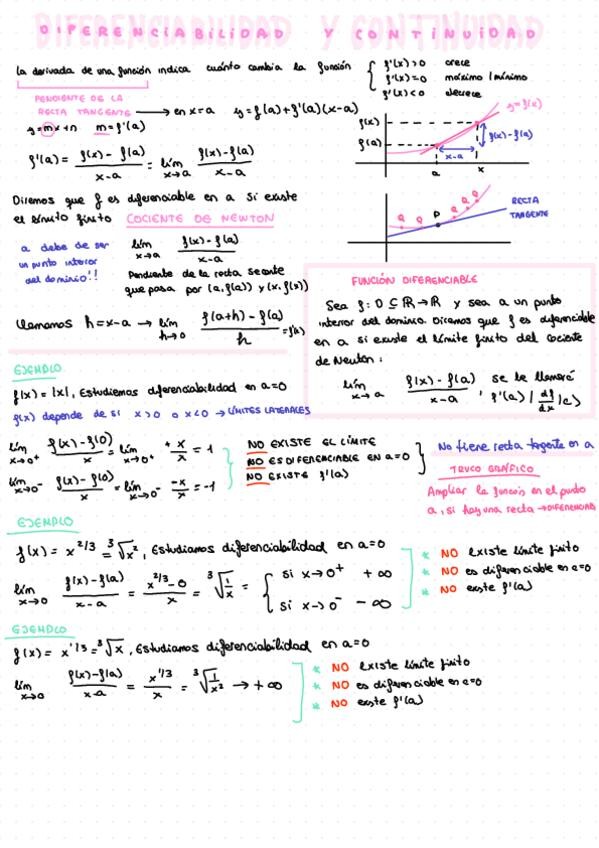 DIFERENCIABILIDAD Y CONTINUIDAD
La derivada de una función indica cuánto cambia la función { f'(x)>0 crece
f'(x)=0 máximo/mínimo
f'(x)<0 decrece
PENDIENTE DE LA
RECTA TANGENTE → en x=a y=f(a)+f'(a)(x-a)
y=mx+n m=f'(a)
f'(a) = f(x)-f(a) / x-a = lím x→a f(x)-f(a) / x-a
y=f(x)
f(x)
f(a)
f(x)-f(a)
x-a
a x
Diremos que f es diferenciable en a si existe
el límite finito COCIENTE DE NEWTON
a debe de ser
un punto interior
del dominio!!
lím x→a f(x)-f(a) / x-a
Pendiente de la recta secante
que pasa por (a,f(a)) y (x,f(x))
Q Q P Q Q Q
RECTA
TANGENTE
Llamamos h=x-a → lím h→0 f(a+h)-f(a) / h
FUNCIÓN DIFERENCIABLE
Sea f: D ⊆ ℝ → ℝ y sea a un punto
interior del dominio. Diremos que f es diferenciable
en a si existe el límite finito del cociente
de Newton:
lím x→a f(x)-f(a) / x-a , se le llamará f'(a) / df/dx
EJEMPLO
f(x) = |x|, Estudiemos diferenciabilidad en a=0
f(x) depende de si x>0 o x<0 → LÍMITES LATERALES
lím x→0⁺ f(x)-f(0) / x = lím x→0⁺ +x/x = 1
lím x→0⁻ f(x)-f(0) / x = lím x→0⁻ -x/x = -1
NO EXISTE EL LÍMITE
NO ES DIFERENCIABLE EN a=0
NO EXISTE f'(a)
No tiene recta tangente en a
TRUCO GRÁFICO
Ampliar la función en el punto
a, si hay una recta → DIFERENCIAB
EJEMPLO
f(x) = x^2/3 = ∛x², Estudiamos diferenciabilidad en a=0
lím x→0 f(x)-f(a) / x-a = x^2/3-0 / x = ∛1/x = { si x→0⁺ +∞
si x→0⁻ -∞
* NO existe límite finito
* NO es diferenciable en a=0
* NO existe f'(a)
EJEMPLO
f(x) = x^1/3 = ∛x, Estudiamos diferenciabilidad en a=0
lím x→0 f(x)-f(a) / x-a = x^1/3 / x = ∛1/x² → +∞
* NO existe límite finito
* NO es diferenciable en a=0
* NO existe f'(a)